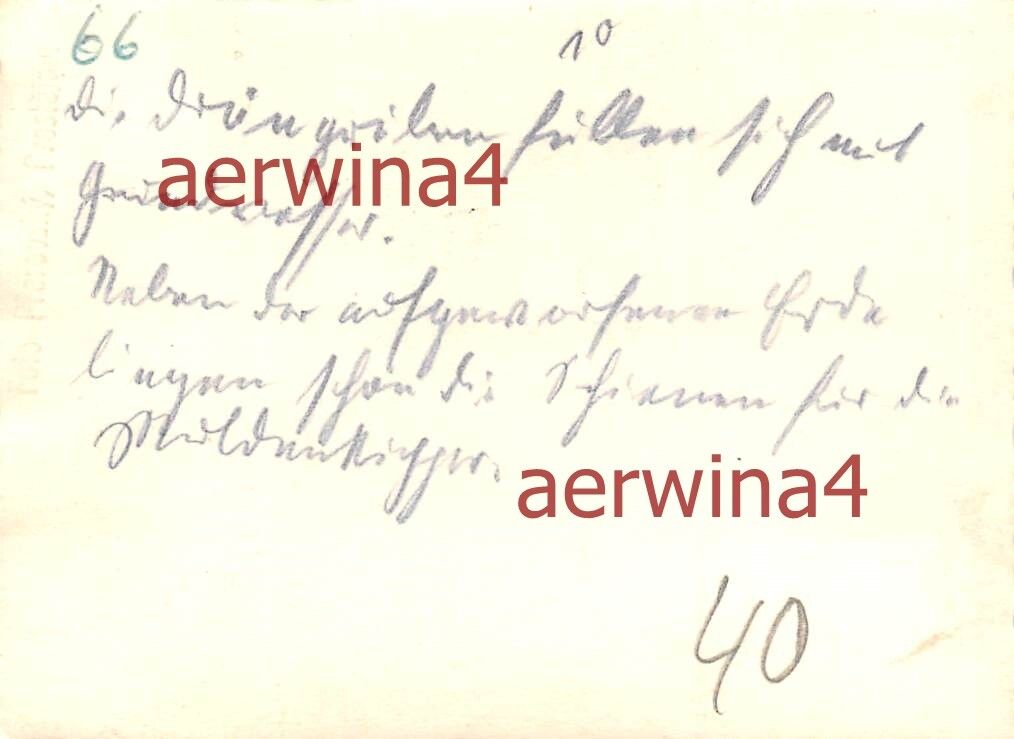 66
10
die Drängräben füllen sich mit
Grundwasser.
Neben der aufgeworfenen Erde
liegen schon die Schienen für die
Muldenkipper.
aerwina4
aerwina4
40